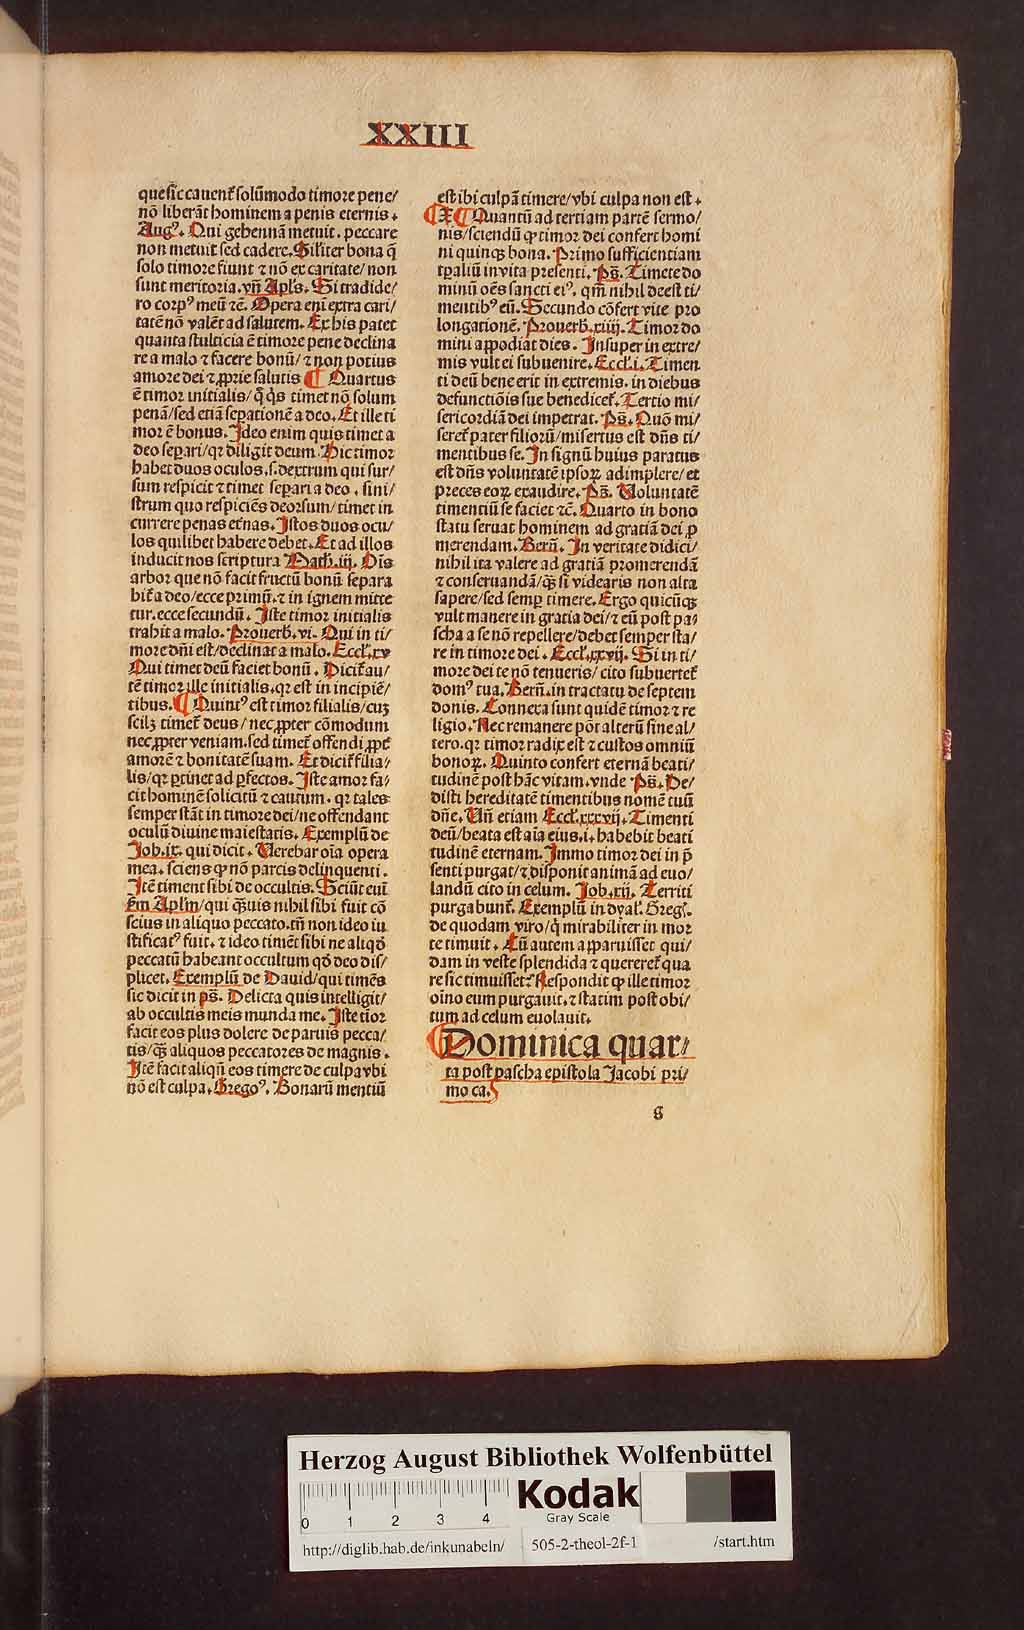 XXIII
que sic cauent᷑ solūmodo timore pene/
nō liberāt hominem a penis eternis.
Augꝰ. Qui gehennā metuit. peccare
non metuit sed cadere. Sil'iter bona q̄
solo timore fiunt ⁊ nō ex caritate/non
sunt meritoria. vn̄ Apl's. Si tradide/
ro corpꝰ meū ⁊c̄. Opera eni extra cari/
tatē nō valēt ad salutem. Ex his patet
quanta stulticia ē timore pene declina
re a malo ⁊ facere bonū/⁊ non potius
amore dei ⁊ ꝓprie salutis ¶ Quartus
ē timor initialis/q̄ q̇s timet nō solum
penā/sed etiā sepationē a deo. Et ille ti
mor ē bonus. Ideo enim quis timet a
deo separi/qꝛ diligit deum. Hic timor
habet duos oculos.s.dextrum qui sur/
sum respicit ⁊ timet separi a deo. sini/
strum quo respiciēs deorsum/timet in
currere penas et'nas. Istos duos ocu/
los quilibet habere debet. Et ad illos
inducit nos scriptura Math.iij. Oīs
arbor que nō facit fructū bonū separa
bit᷑ a deo/ecce primū. ⁊ in ignem mitte
tur. ecce secundū. Iste timor initialis
trahit a malo. Prouerb.vi. Qui in ti/
more dn̄i est/declinat a malo. Eccl'.xv
Qui timet deū faciet bonū. Dicit᷑ au/
tē timor ille initialis. qꝛ est in incipiē/
tibus. ¶ Quintꝰ est timor filialis/cuꝫ
scilꝫ timet᷑ deus/nec ꝓpter cōmodum
nec ꝓpter veniam. sed timet᷑ offendi ꝓpt᷑
amorē ⁊ bonitatē suam. Et dicit᷑ filia/
lis/qꝛ ꝑtinet ad ꝑfectos. Iste amor fa/
cit hominē solicitū ⁊ cautum. qꝛ tales
semper stāt in timore dei/ne offendant
oculū diuine maiestatis. Exemplū de
Job.ix. qui dicit. Verebar oīa opera
mea. sciens ꝙ nō parcis delinquenti.
Itē timent sibi de occultis. Sciūt eni
ẜm Apl'm/qui q̄uis nihil sibi fuit cō
scius in aliquo peccato. tn̄ non ideo iu
stificatꝰ fuit. ⁊ ideo timēt sibi ne aliqd̄
peccatū habeant occultum qd̄ deo dis/
plicet. Exemplū de Dauid/qui timēs
sic dicit in ps̄. Delicta quis intelligit/
ab occultis meis munda me. Iste tīor
facit eos plus dolere de paruis pecca/
tis/q̄ȝ aliquos peccatores de magnis.
Itē facit aliqn̄ eos timere de culpa vbi
nō est culpa. Gregoꝰ. Bonarū mentiū
est ibi culpā timere/vbi culpa non est.
¶ X ¶ Quantū ad tertiam partē sermo/
nis/sciendū ꝙ timor dei confert homi
ni quinqꝫ bona. Primo sufficientiam
tꝑaliū in vita presenti. Ps̄. Timete do
minū oēs sancti eiꝰ. qm̄ nihil deest ti/
mentibꝰ eū. Secundo cōfert vite pro
longationē. Prouerb.xiiij. Timor do
mini appodiat dies. Insuper in extre/
mis vult ei subuenire. Eccl'.i. Timen
ti deū bene erit in extremis. in diebus
defunctiōis sue benedicet᷑. Tertio mi/
sericordiā dei impetrat. Ps̄. Quō mi/
seret᷑ pater filiorū/misertus est dn̄s ti/
mentibus se. In signū huius paratus
est dn̄s voluntatē ipsoꝝ adimplere/et
preces eoꝝ exaudire. Ps̄. Voluntatē
timentiū se faciet ⁊c̄. Quarto in bono
statu seruat hominem ad gratiā dei ꝓ
merendam. Bern̄. In veritate didici/
nihil ita valere ad gratiā promerendā
⁊ conseruandā/q̄ȝ si videaris non alta
sapere/sed semꝑ timere. Ergo quicūqꝫ
vult manere in gratia dei/⁊ eū post pa/
scha a se nō repellere/debet semper sta/
re in timore dei. Eccl'.xxvij. Si in ti/
more dei te nō tenueris/cito subuertet᷑
domꝰ tua. Bern̄. in tractatu de septem
donis. Connexa sunt quidē timor ⁊ re
ligio. Nec remanere pōt alterū sine al/
tero. qꝛ timor radix est ⁊ custos omniū
bonoꝝ. Quinto confert eternā beati/
tudinē post hāc vitam. vnde Ps̄. De/
disti hereditatē timentibus nomē tuū
dn̄e. Vn̄ etiam Eccl'.xxxvij. Timenti
deū/beata est aīa eius.i. habebit beati
tudinē eternam. Immo timor dei in p̄
senti purgat/⁊ disponit animā ad euo/
landū cito in celum. Job.xij. Territi
purgabunt᷑. Exemplū in dyal'. Greg'.
de quodam viro/q̇ mirabiliter in mor
te timuit. Cū autem apparuisset qui/
dam in veste splendida ⁊ quereret᷑ qua
re sic timuisset? Respondit ꝙ ille timor
oīno eum purgauit. ⁊ statim post obi/
tum ad celum euolauit.
¶ Dominica quar/
ta post pascha epistola Jacobi pri/
mo ca.
g
Herzog August Bibliothek Wolfenbüttel
0 1 2 3 4
Kodak
Gray Scale
http://diglib.hab.de/inkunabeln/ 505-2-theol-2f-1 /start.htm